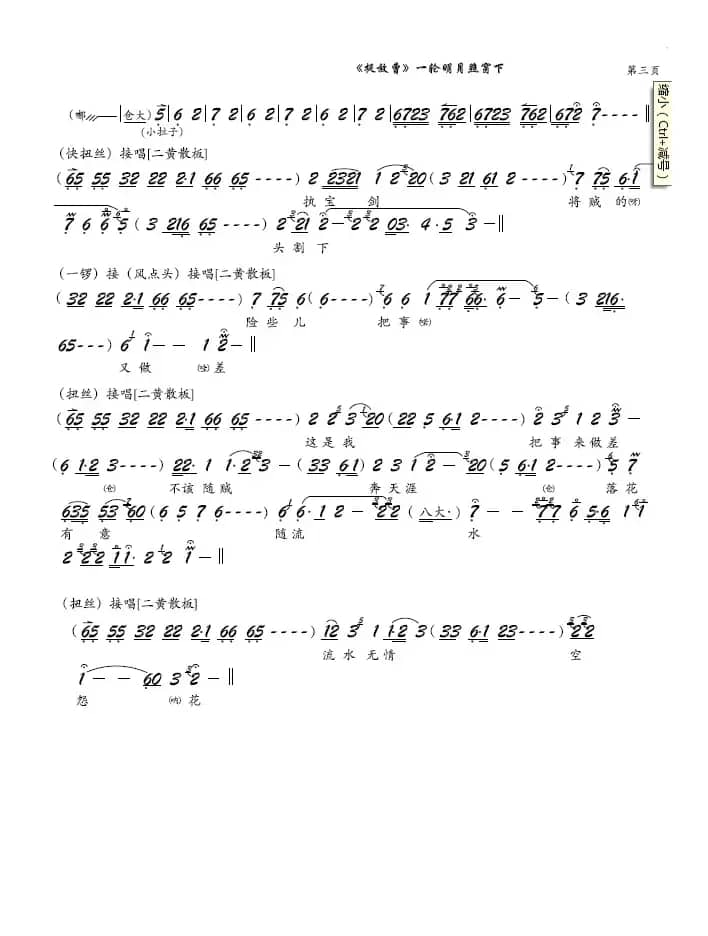 《捉放曹》一轮明月照窗下
第三页
缩小（Ctrl+减号）
（啷 仓大） 5 6 2 7 2 6 2 7 2 6 2 7 2 6 7 2 6723 762 6723 762 672 7----
（小拉子）
（快扭丝）接唱[二黄散板]
（65 55 32 22 2·1 66 65----）2 2321 1 2 20（3 21 61 2 ----）7 75 6·1
执宝 剑 将贼 的
7 6 6 5（3 216 65----）2 21 2-2 2 03· 4·5 3-
头割下
（一锣）接（风点头）接唱[二黄散板]
（32 22 2·1 66 65----）7 75 6（6----）6 6 1 77 66· 6- 6-（3 216·
险些 儿 把事
65---）6 1-- 1 2-
又做 差
（扭丝）接唱[二黄散板]
（65 55 32 22 2·1 66 65----）2 2 3 20（22 5 6·1 2----）2 3 1 2 3-
这是我 把事 来做差
（6 1·2 3----）22· 1 1·2 3-（33 61）2 3 1 2- 20（5 6·1 2----）5 7
不该随贼 奔天涯 落花
635 53 60（6 5 7 6----）6 6·1 2- 22（八大·）7-- 77 6 5·6 1 1
有 意 随流 水
2 22 11· 2 2 1-
（扭丝）接唱[二黄散板]
（65 55 32 22 2·1 66 65----）12 3 1 1·2 3（33 6·1 23----）22
流水无情 空
1-- 60 3 2-
怨 花